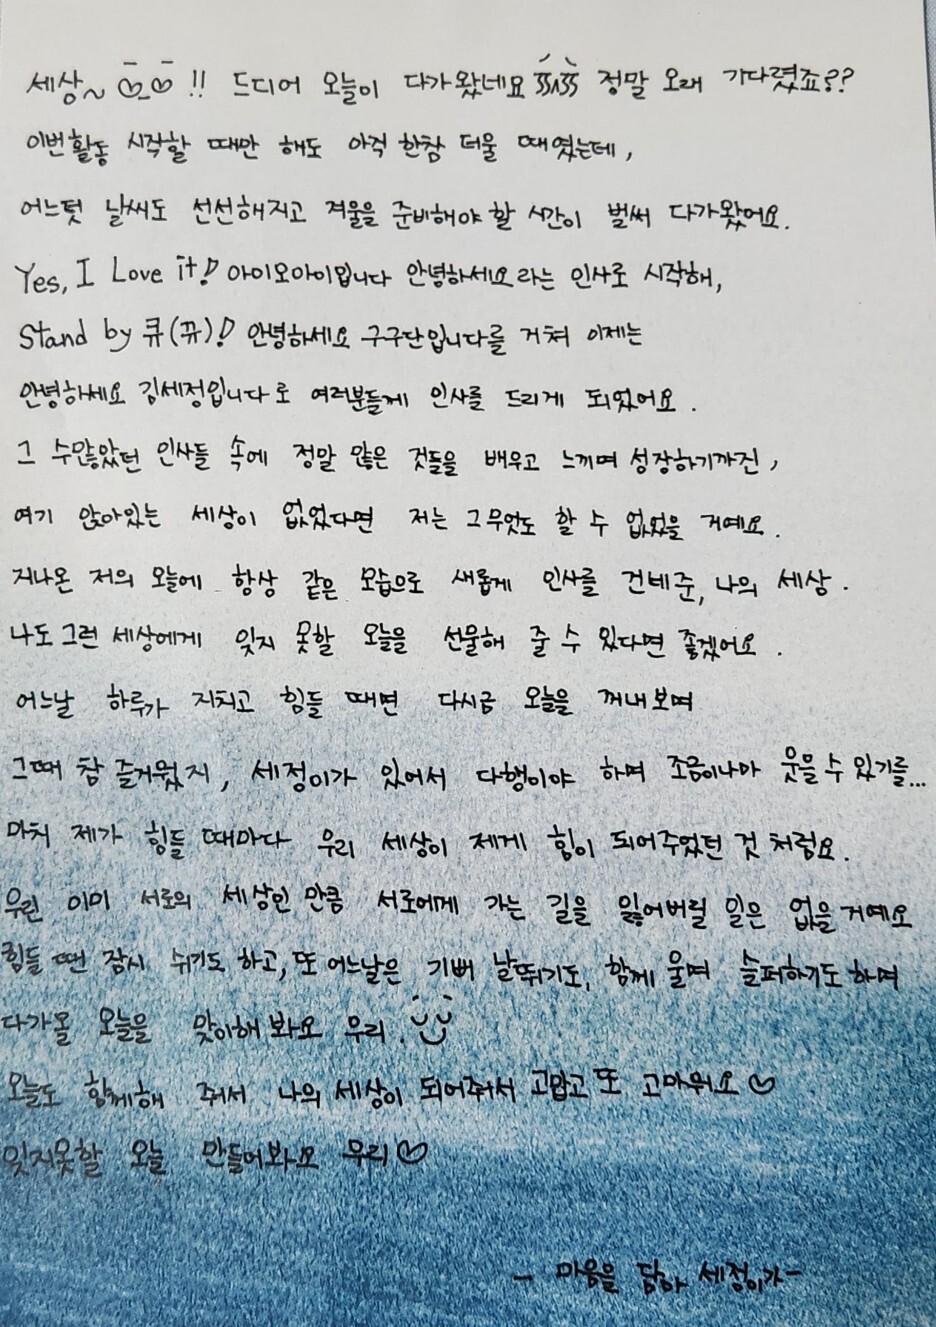 세상~ !! 드디어 오늘이 다가왔네요 정말 오래 기다렸죠??
이번활동 시작할 때만 해도 아직 한참 더울 때였는데,
어느덧 날씨도 선선해지고 겨울을 준비해야 할 시간이 벌써 다가왔어요.
Yes, I Love it! 아이오아이입니다 안녕하세요라는 인사로 시작해,
Stand by 큐(뀨)! 안녕하세요 구구단입니다를 거쳐 이제는
안녕하세요 김세정입니다로 여러분들께 인사를 드리게 되었어요.
그 수많았던 인사들 속에 정말 많은 것들을 배우고 느끼며 성장하기까진,
여기 앉아있는 세상이 없었다면 저는 그무엇도 할 수 없었을 거예요.
지나온 저의 오늘에 항상 같은 모습으로 새롭게 인사를 건네준, 나의 세상.
나도 그런 세상에게 잊지 못할 오늘을 선물해 줄 수 있다면 좋겠어요.
어느날 하루가 지치고 힘들 때면 다시금 오늘을 꺼내보며
그때 참 즐거웠지, 세정이가 있어서 다행이야 하며 조금이나마 웃을 수 있기를...
마치 제가 힘들 때마다 우리 세상이 제게 힘이 되어주었던 것 처럼요.
우린 이미 서로의 세상인 만큼 서로에게 가는 길을 잃어버릴 일은 없을거예요
힘들 땐 잠시 쉬기도 하고, 또 어느날은 기뻐 날뛰기도, 함께 울며 슬퍼하기도 하며
다가올 오늘을 맞이해 봐요 우리.
오늘도 함께해 줘서 나의 세상이 되어줘서 고맙고 또 고마워요♡
잊지못할 오늘 만들어봐요 우리♡
- 마음을 담아 세정이가-